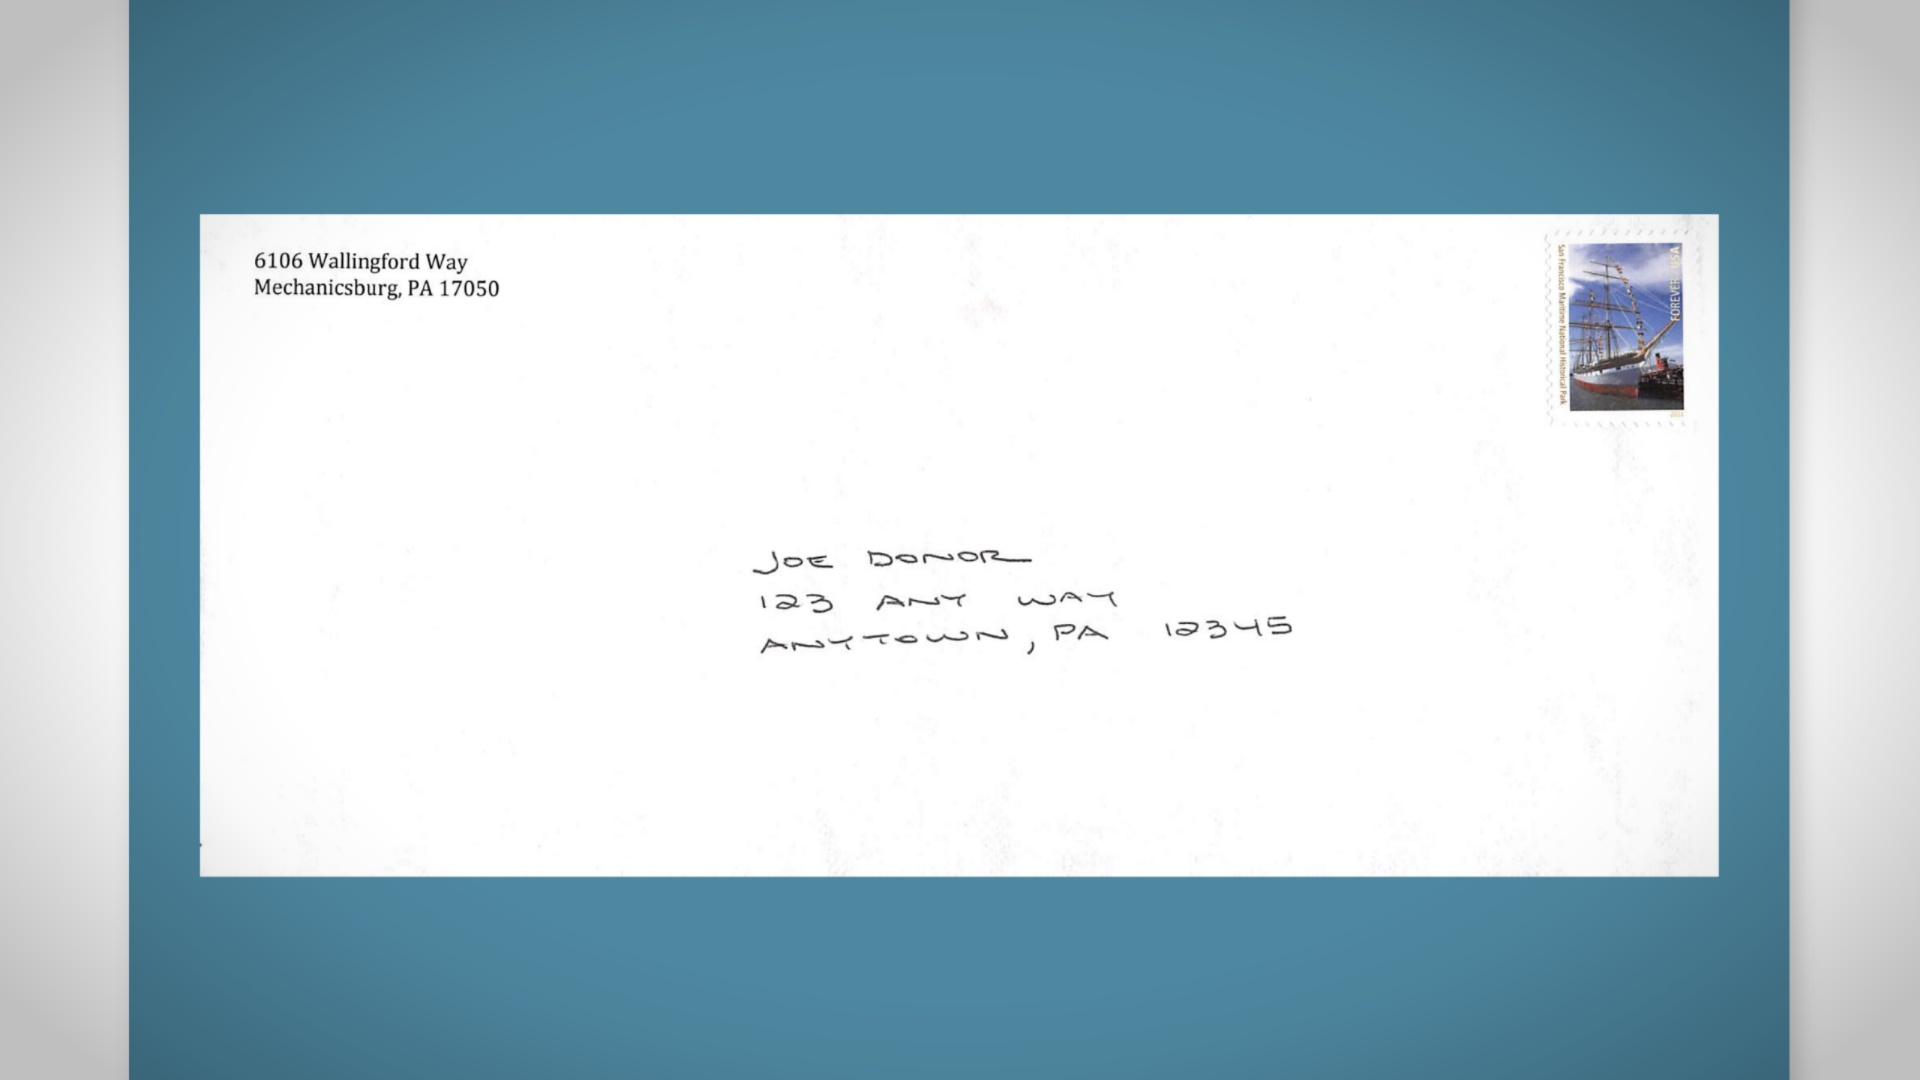 6106 Wallingford Way
Mechanicsburg, PA 17050
San Francisco Maritime National Historical Park
FOREVER USA
JOE DONOR
123 ANY WAY
ANYTOWN, PA 12345